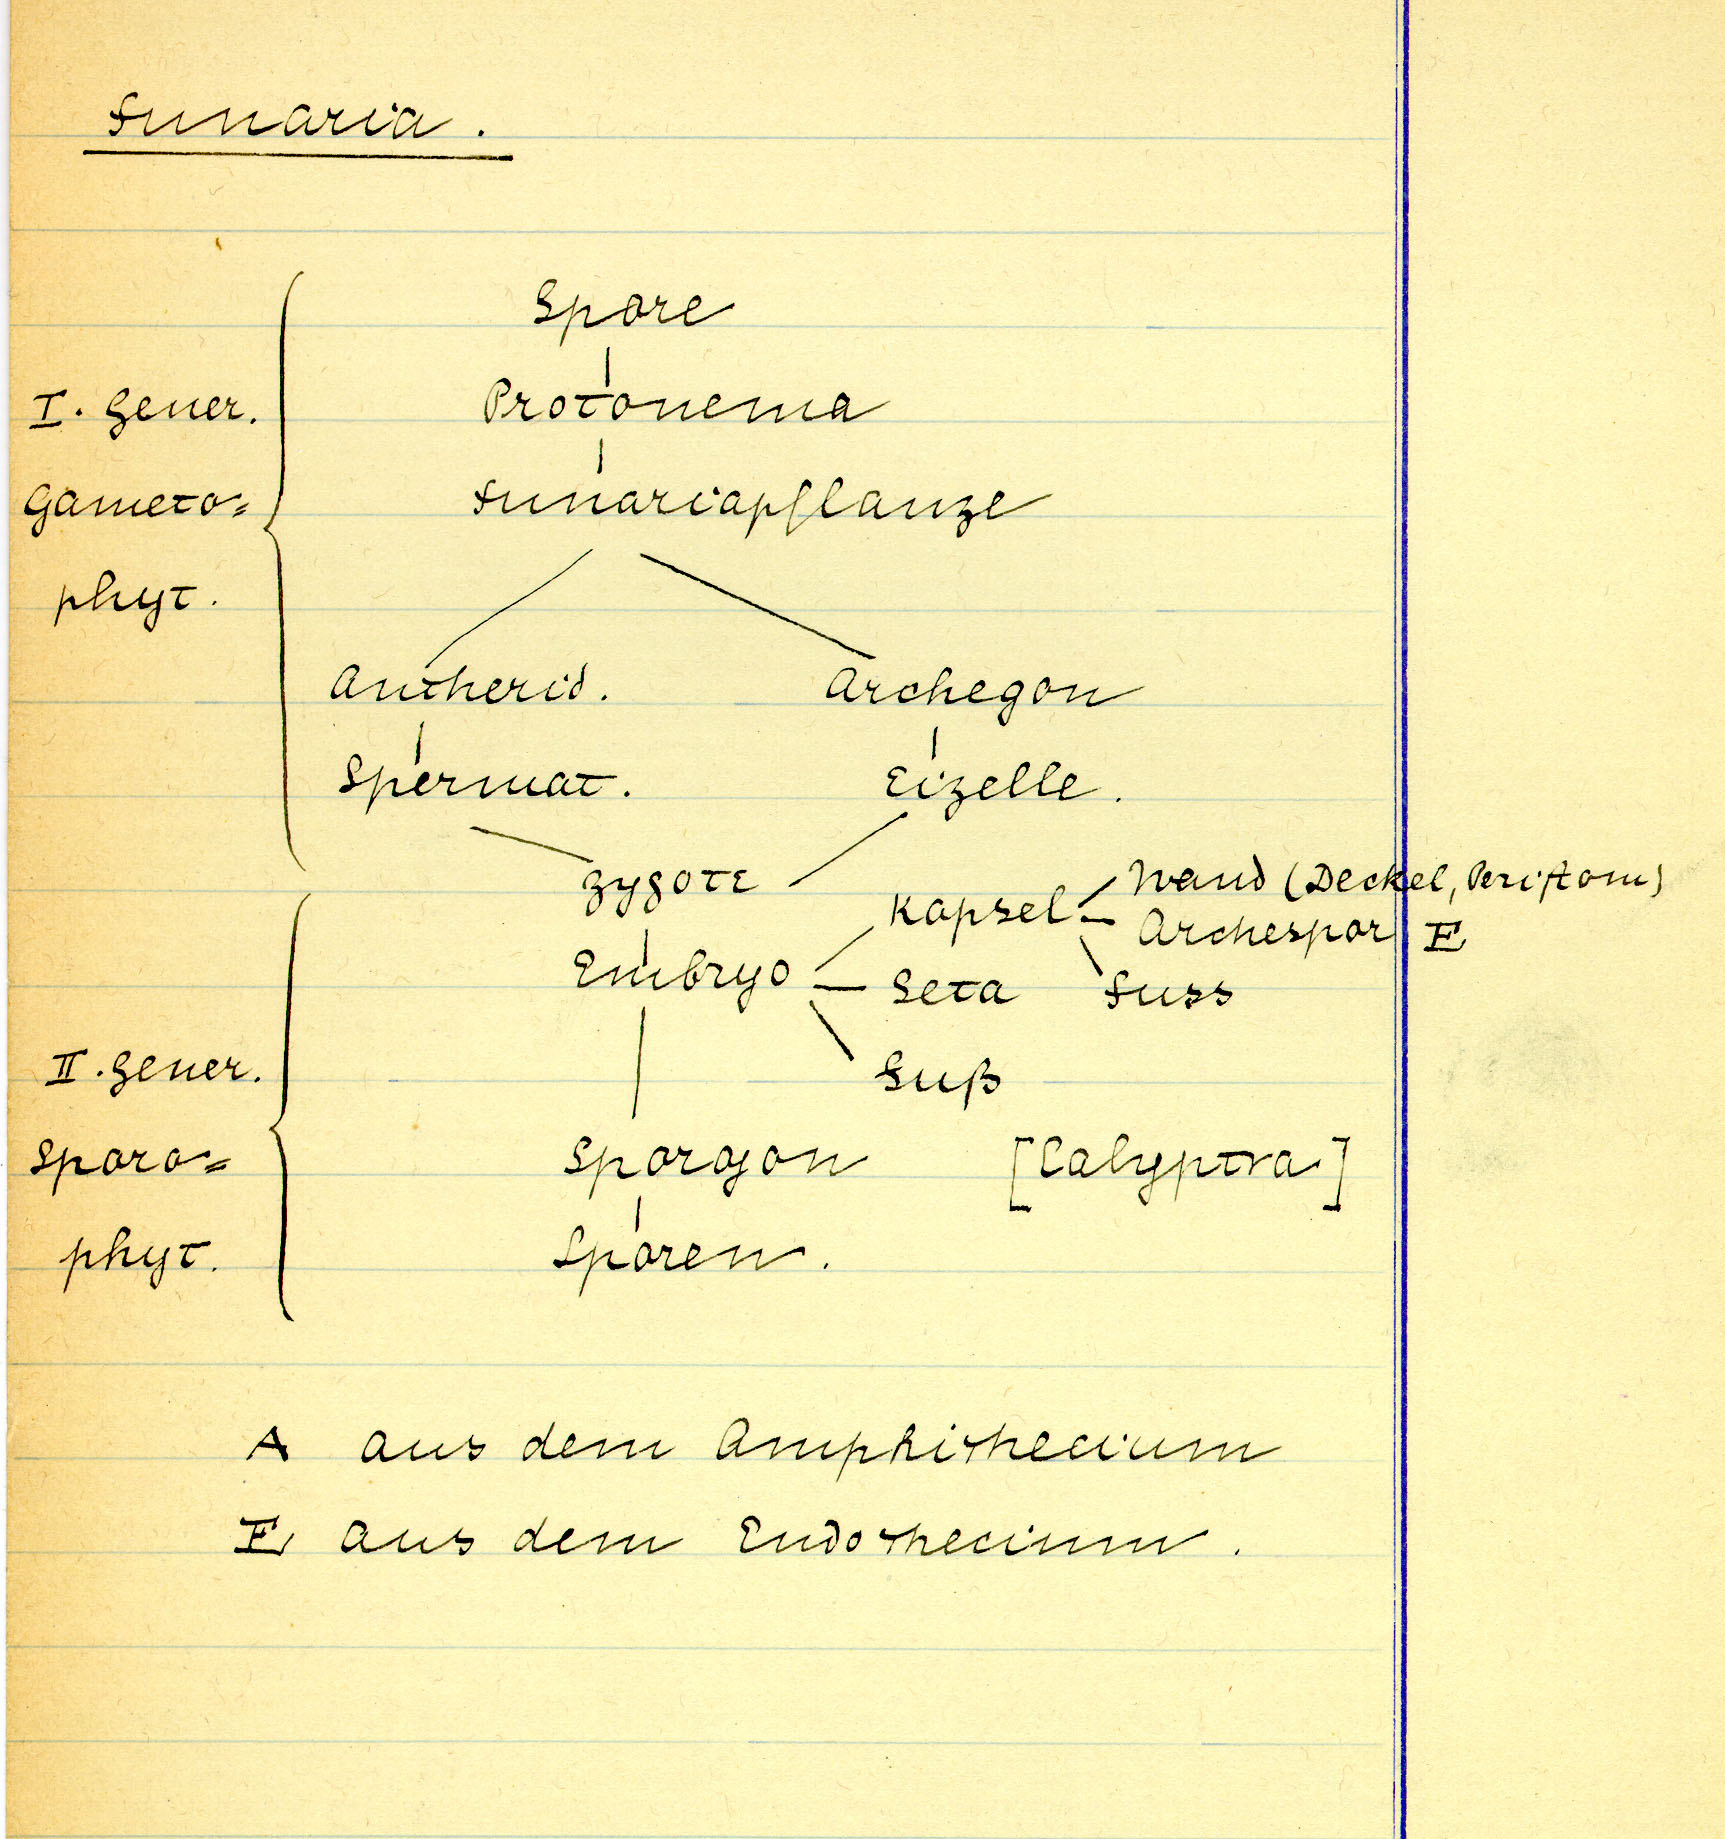 Funaria.
Spore
I. Gener.
Protonema
Gameto=
Funariapflanze
phyt.
Antherid.
Archegon
Spermat.
Eizelle.
Zygote
Kapsel
Wand (Deckel, Peristom)
Archespor E
Embryo
Seta
Fuss
II. Gener.
Fuß
Sporo=
Sporogon
[Calyptra]
phyt.
Sporen.
A aus dem Amphithecium
E aus dem Endothecium.